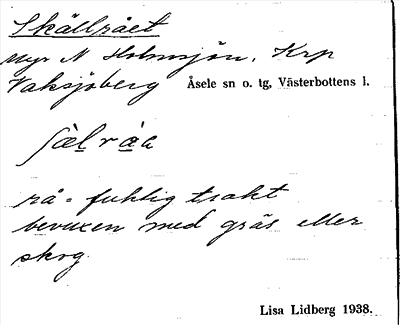 Skällrået
Myr N Holmsjön, Krp
Vaksjöberg Åsele sn o. tg, Västerbottens l.
rå = fuktig trakt
bevuxen med gräs eller
skog.
Lisa Lidberg 1938.